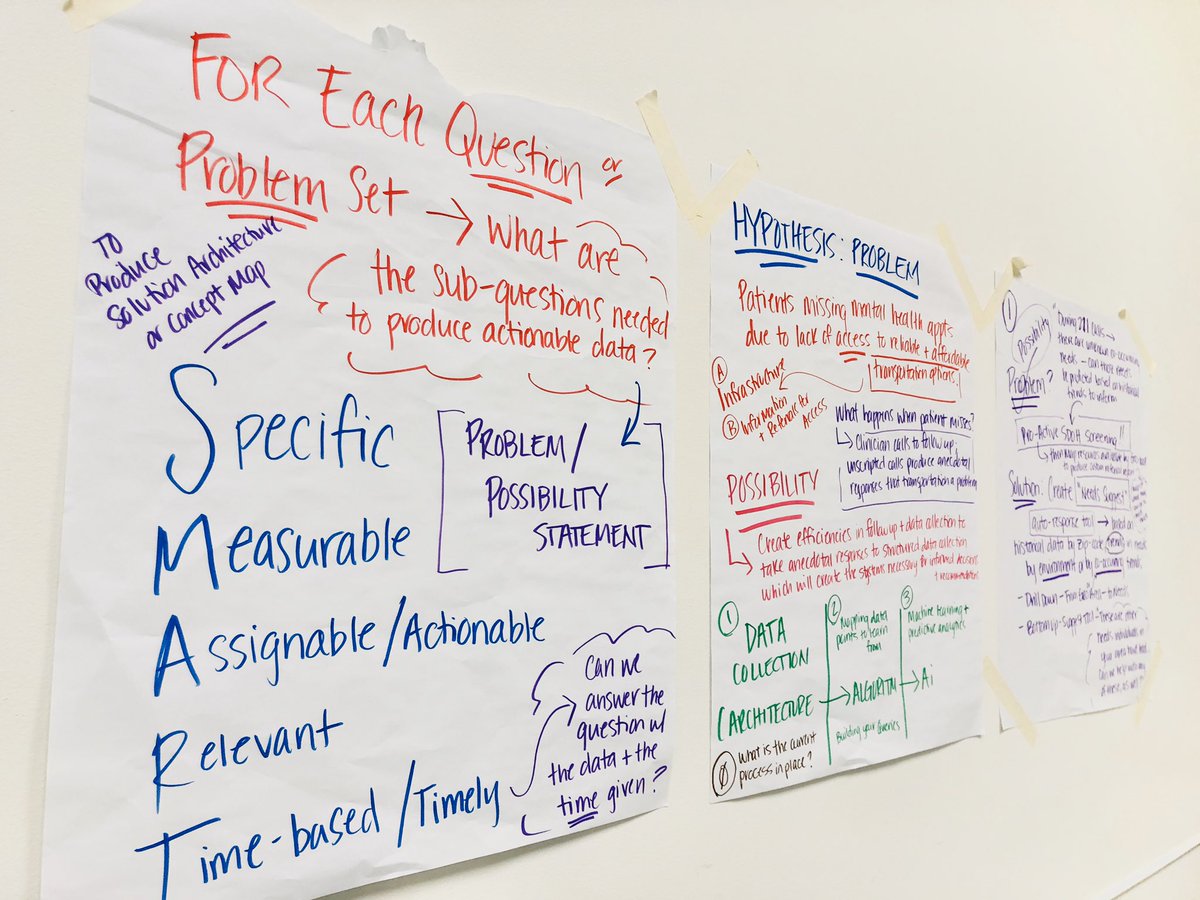 FOR Each Question or
Problem Set → What are
the sub-questions needed
to produce actionable data?
TO
Produce
Solution Architecture
or Concept Map
Specific
Measurable
Assignable/Actionable
Relevant
Time-based/Timely
PROBLEM/
POSSIBILITY
STATEMENT
Can we
answer the
question w/
the data + the
time given?
HYPOTHESIS: PROBLEM
Patients missing mental health appts
due to lack of access to reliable + affordable
transportation options.
A Infrastructure
B Information
+ Referrals for
Access
What happens when patient misses?
↳ Clinician calls to follow up;
unscripted calls produce anecdotal
responses that transportation a problem
POSSIBILITY
↳ Create efficiencies in follow up + data collection to
take anecdotal responses to structured data collection
which will create the systems necessary for informed decisions
+ recommendations
1 DATA
COLLECTION
(ARCHITECTURE →
2 Mapping data
points to learn
from
ALGORITM →
Building your
3 Machine learning +
predictive analytics
Ai
Ø What is the current
process in place?
1 Possibility
Problem?
"During 211 calls →
there are unknown co-occurring
needs - can those needs
be predicted based on historical
trends to inform
Pro-Active SDOH Screening"
Solution: Create "Needs Suggest"
auto-response tool → based on
historical data by zip-code trends in needs
by environment or by co-occurring trends.
- Drill Down - From - to Needs
- Bottom Up - Support Tool - "These are other
needs individuals in
your area have had.
Can we help with any
of these, as well?"